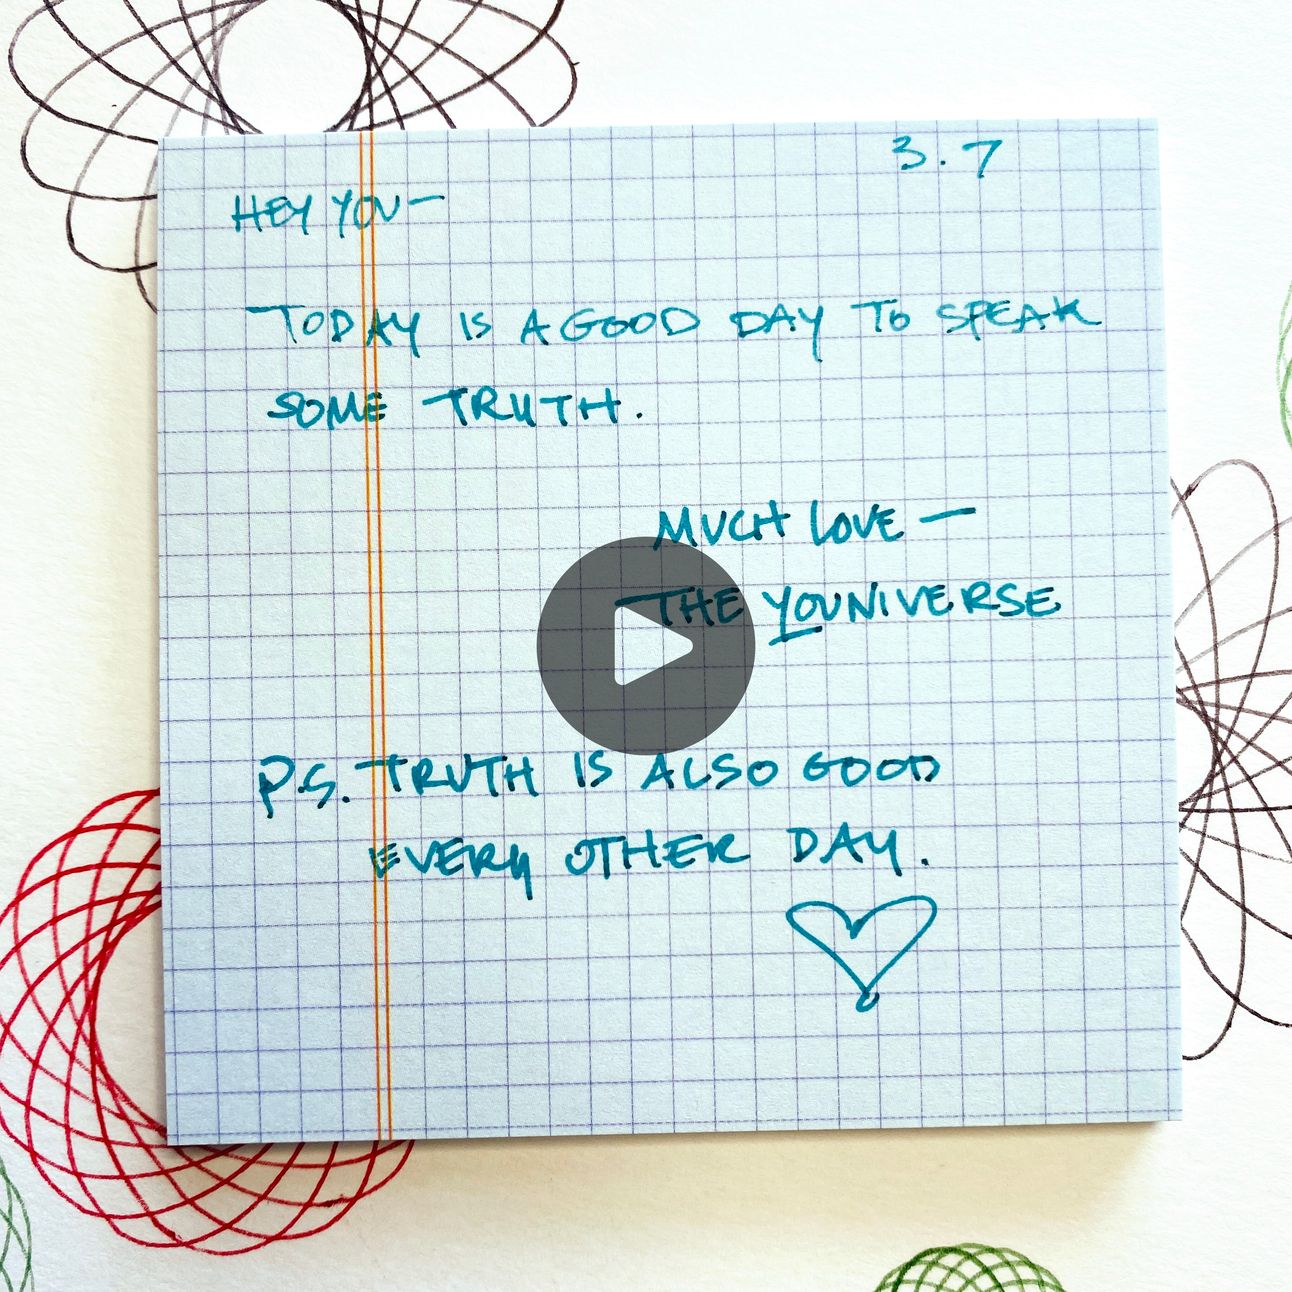 3.7
HEY YOU—
TODAY IS A GOOD DAY TO SPEAK
SOME TRUTH.
MUCH LOVE —
THE YOUNIVERSE
P.S. TRUTH IS ALSO GOOD
EVERY OTHER DAY.